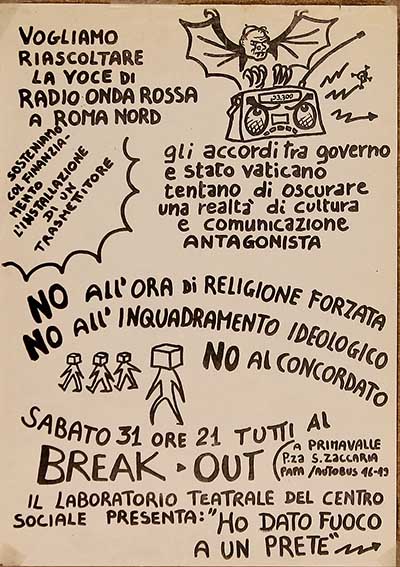 VOGLIAMO
RIASCOLTARE
LA VOCE DI
RADIO ONDA ROSSA
A ROMA NORD
93.300
SOSTENIAMO
COL FINANZIA-
MENTO
L'INSTALLAZIONE
DI UN
TRASMETTITORE
gli accordi tra governo
e stato vaticano
tentano di oscurare
una realtà di cultura
e comunicazione
ANTAGONISTA
NO All'ORA di RELIGIONE FORZATA
NO All'INQUADRAMENTO IDEOLOGICO
NO Al CONCORDATO
SABATO 31 ORE 21 TUTTI Al
BREAK-OUT
(A PRIMAVALLE
P.za S. ZACCARIA
PAPA/AUTOBUS 46-49
IL LABORATORIO TEATRALE DEL CENTRO
SOCIALE PRESENTA: "HO DATO FUOCO
A UN PRETE"